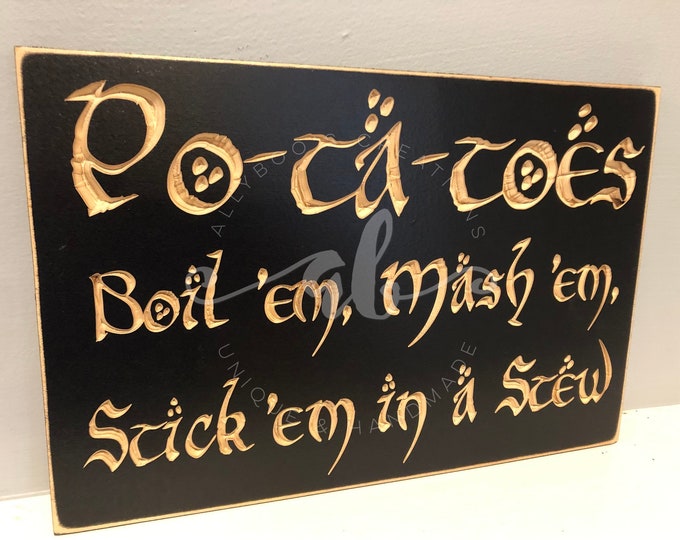 Po-ta-toes
Boil 'em, Mash 'em,
Stick 'em in a Stew
ALLYBOO'S CREATIONS
abc
UNIQUE & HANDMADE